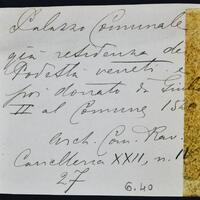 Palazzo Comunale
già residenza de
Podestà veneti e
poi donato da Giulio
II al Comune 15
Arch. Com. Rav.
Cancelleria XXII, n. 
27
6.40